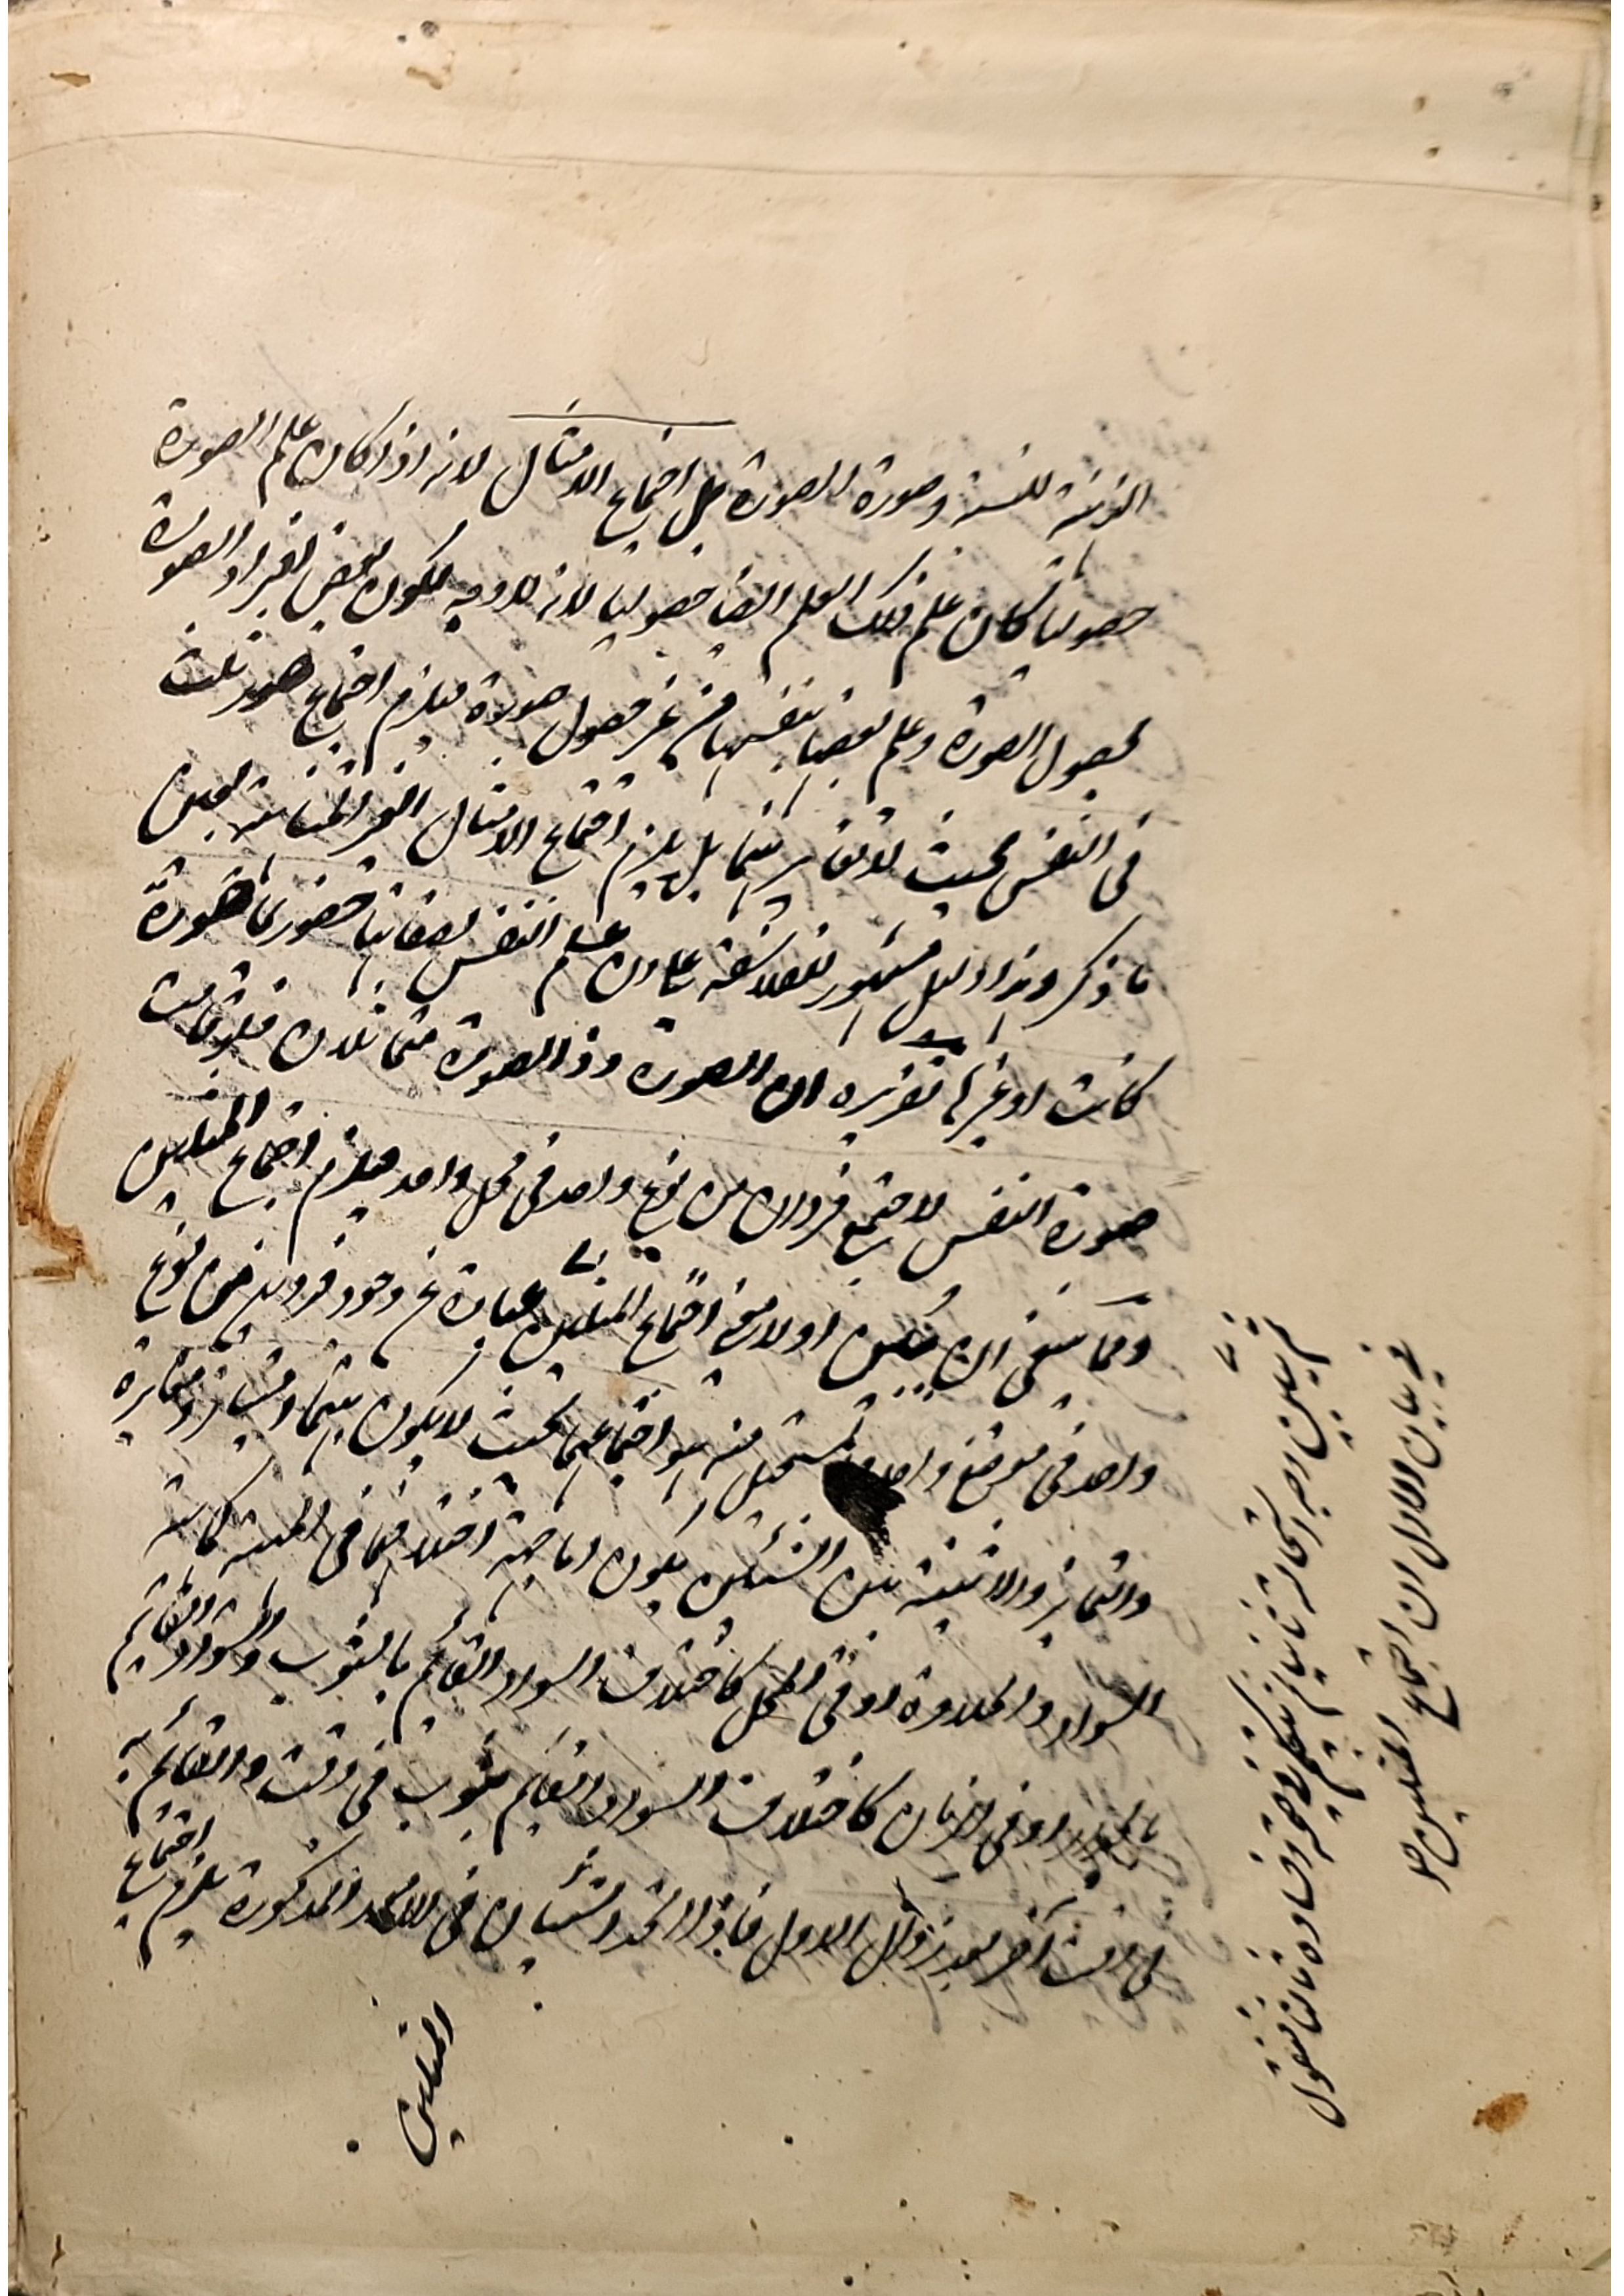 الذهنية للنسبة وصورة الصورة بل اجتماع الامثال لانه اذا كان علم الصورة
حصوليا كان علم ذلك العلم ايضا حصوليا لانه لا وجه لكون بعض افراد الصورة
بحصول الصورة وعلم بعضها بنفسها من غير حصول صورة فيلزم اجتماع صور ثلث
في النفس بحيث لا تغاير بينها بل يلزم اجتماع الامثال الغير المتناهية بعين
ما ذكر وهذا دليل مشهور للفلاسفة على ان علم النفس بصفاتها حضوري صورة
كانت او غيرها تقريره ان الصورة وذا الصورة متماثلان فلو قامت
صورة النفس لاجتمع فردان من نوع واحد في محل واحد فيلزم اجتماع المثلين
ومما ينبغي ان يبين اولا معنى اجتماع المثلين عبارة عن وجود فردين من نوع
واحد في موضع واحد والمستحيل منه هو اجتماعهما بحيث لا يكون بينهما امتياز ومغايرة
والتمايز والاثنينية بين الشيئين يكون اما جهة اختلافهما في المهية كما بين
السواد والحلاوة او في المحل كاختلاف السواد القائم بالثوب والسواد القائم
بالجدار او في الزمان كاختلاف السواد القائم بثوب في وقت والقائم به
في وقت آخر بعد زوال الاول فاذا اتحد الشيئان في الامور المذكورة يلزم اجتماع
المثلين
ثم يبين وجه استحالته ثانيا ثم يتكلم في صحته وفساده ثالثا فنقول
في بيان الاول ان اجتماع المثلين هو